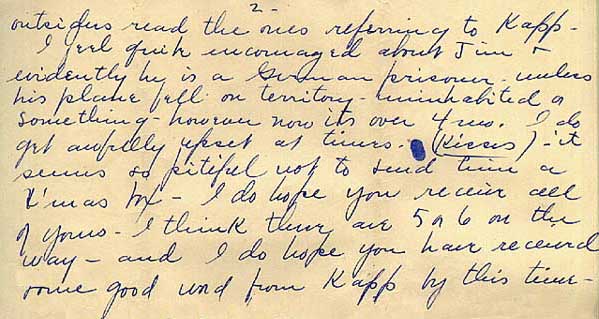 - 2 -
outsiders read the ones referring to Kapp -
I feel quite encouraged about Jim +
evidently he is a German prisoner - unless
his plane fell on territory - uninhabited or
something - however now its over 4 mo. I do
get awfully upset at times. (Kisses) - it
seems so pitiful not to send him a
X'mas box - I do hope you receive all
of yours - I think there are 5 or 6 on the
way - and I do hope you have received
some good word from Kapp by this time -